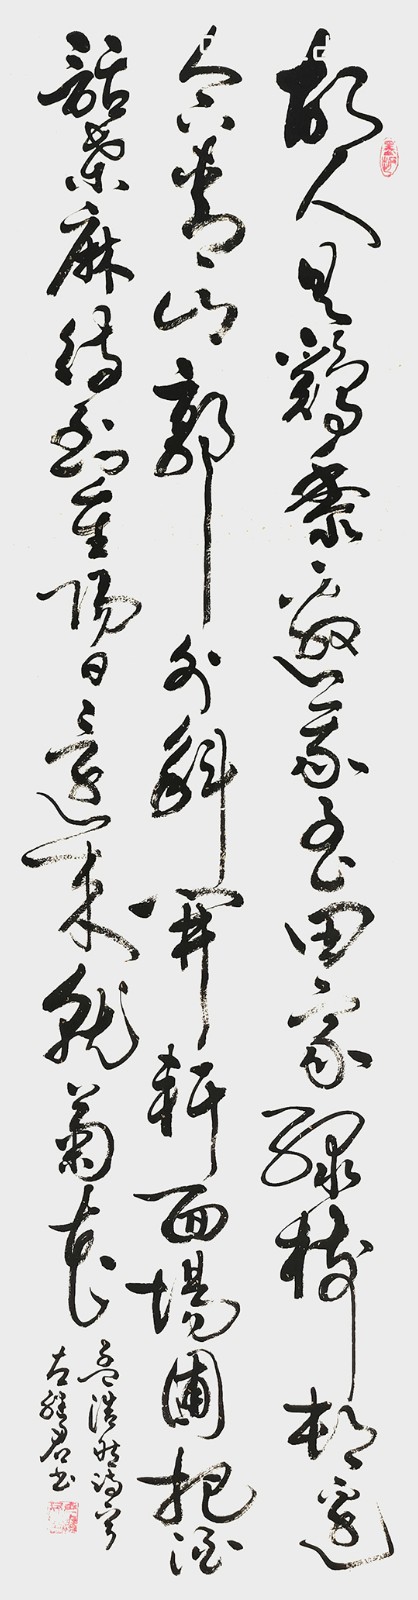 故人具鷄黍邀我至田家緑樹村邊
合青山郭外斜開軒面場圃把酒
話桑麻待到重陽日還來就菊花
孟浩然詩
君書